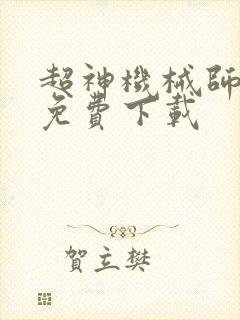 超神機械師
免費下載
賀立樊